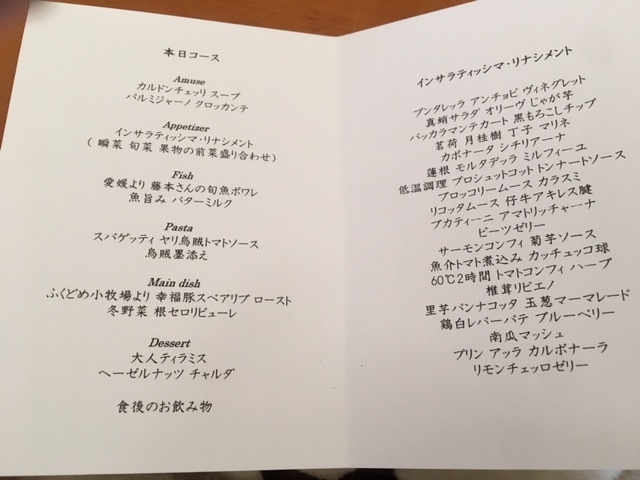 本日コース
Amuse
カルドンチェッリ スープ
パルミジャーノ クロッカンテ
Appetizer
インサラティッシマ・リナシメント
( 瞬菜 旬菜 果物の前菜盛り合わせ)
Fish
愛媛より 藤本さんの旬魚ポワレ
魚旨み バターミルク
Pasta
スパゲッティ ヤリ烏賊トマトソース
烏賊墨添え
Main dish
ふくどめ小牧場より 幸福豚スペアリブ ロースト
冬野菜 根セロリピューレ
Dessert
大人ティラミス
ヘーゼルナッツ チャルダ
食後のお飲み物
インサラティッシマ・リナシメント
プンタレッラ アンチョビ ヴィネグレット
真蛸サラダ オリーヴ じゃが芋
バッカラマンテカート 黒もろこしチップ
茗荷 月桂樹 丁子 マリネ
カポナータ シチリアーナ
蓮根 モルタデッラ ミルフィーユ
低温調理 プロシュットコット トンナートソース
ブロッコリームース カラスミ
リコッタムース 仔牛アキレス腱
ブカティーニ アマトリッチャーナ
ビーツゼリー
サーモンコンフィ 菊芋ソース
魚介トマト煮込み カッチュッコ球
60℃2時間 トマトコンフィ ハーブ
椎茸リピエノ
里芋パンナコッタ 玉葱マーマレード
鶏白レバーパテ ブルーベリー
南瓜マッシュ
プリン アッラ カルボナーラ
リモンチェッロゼリー